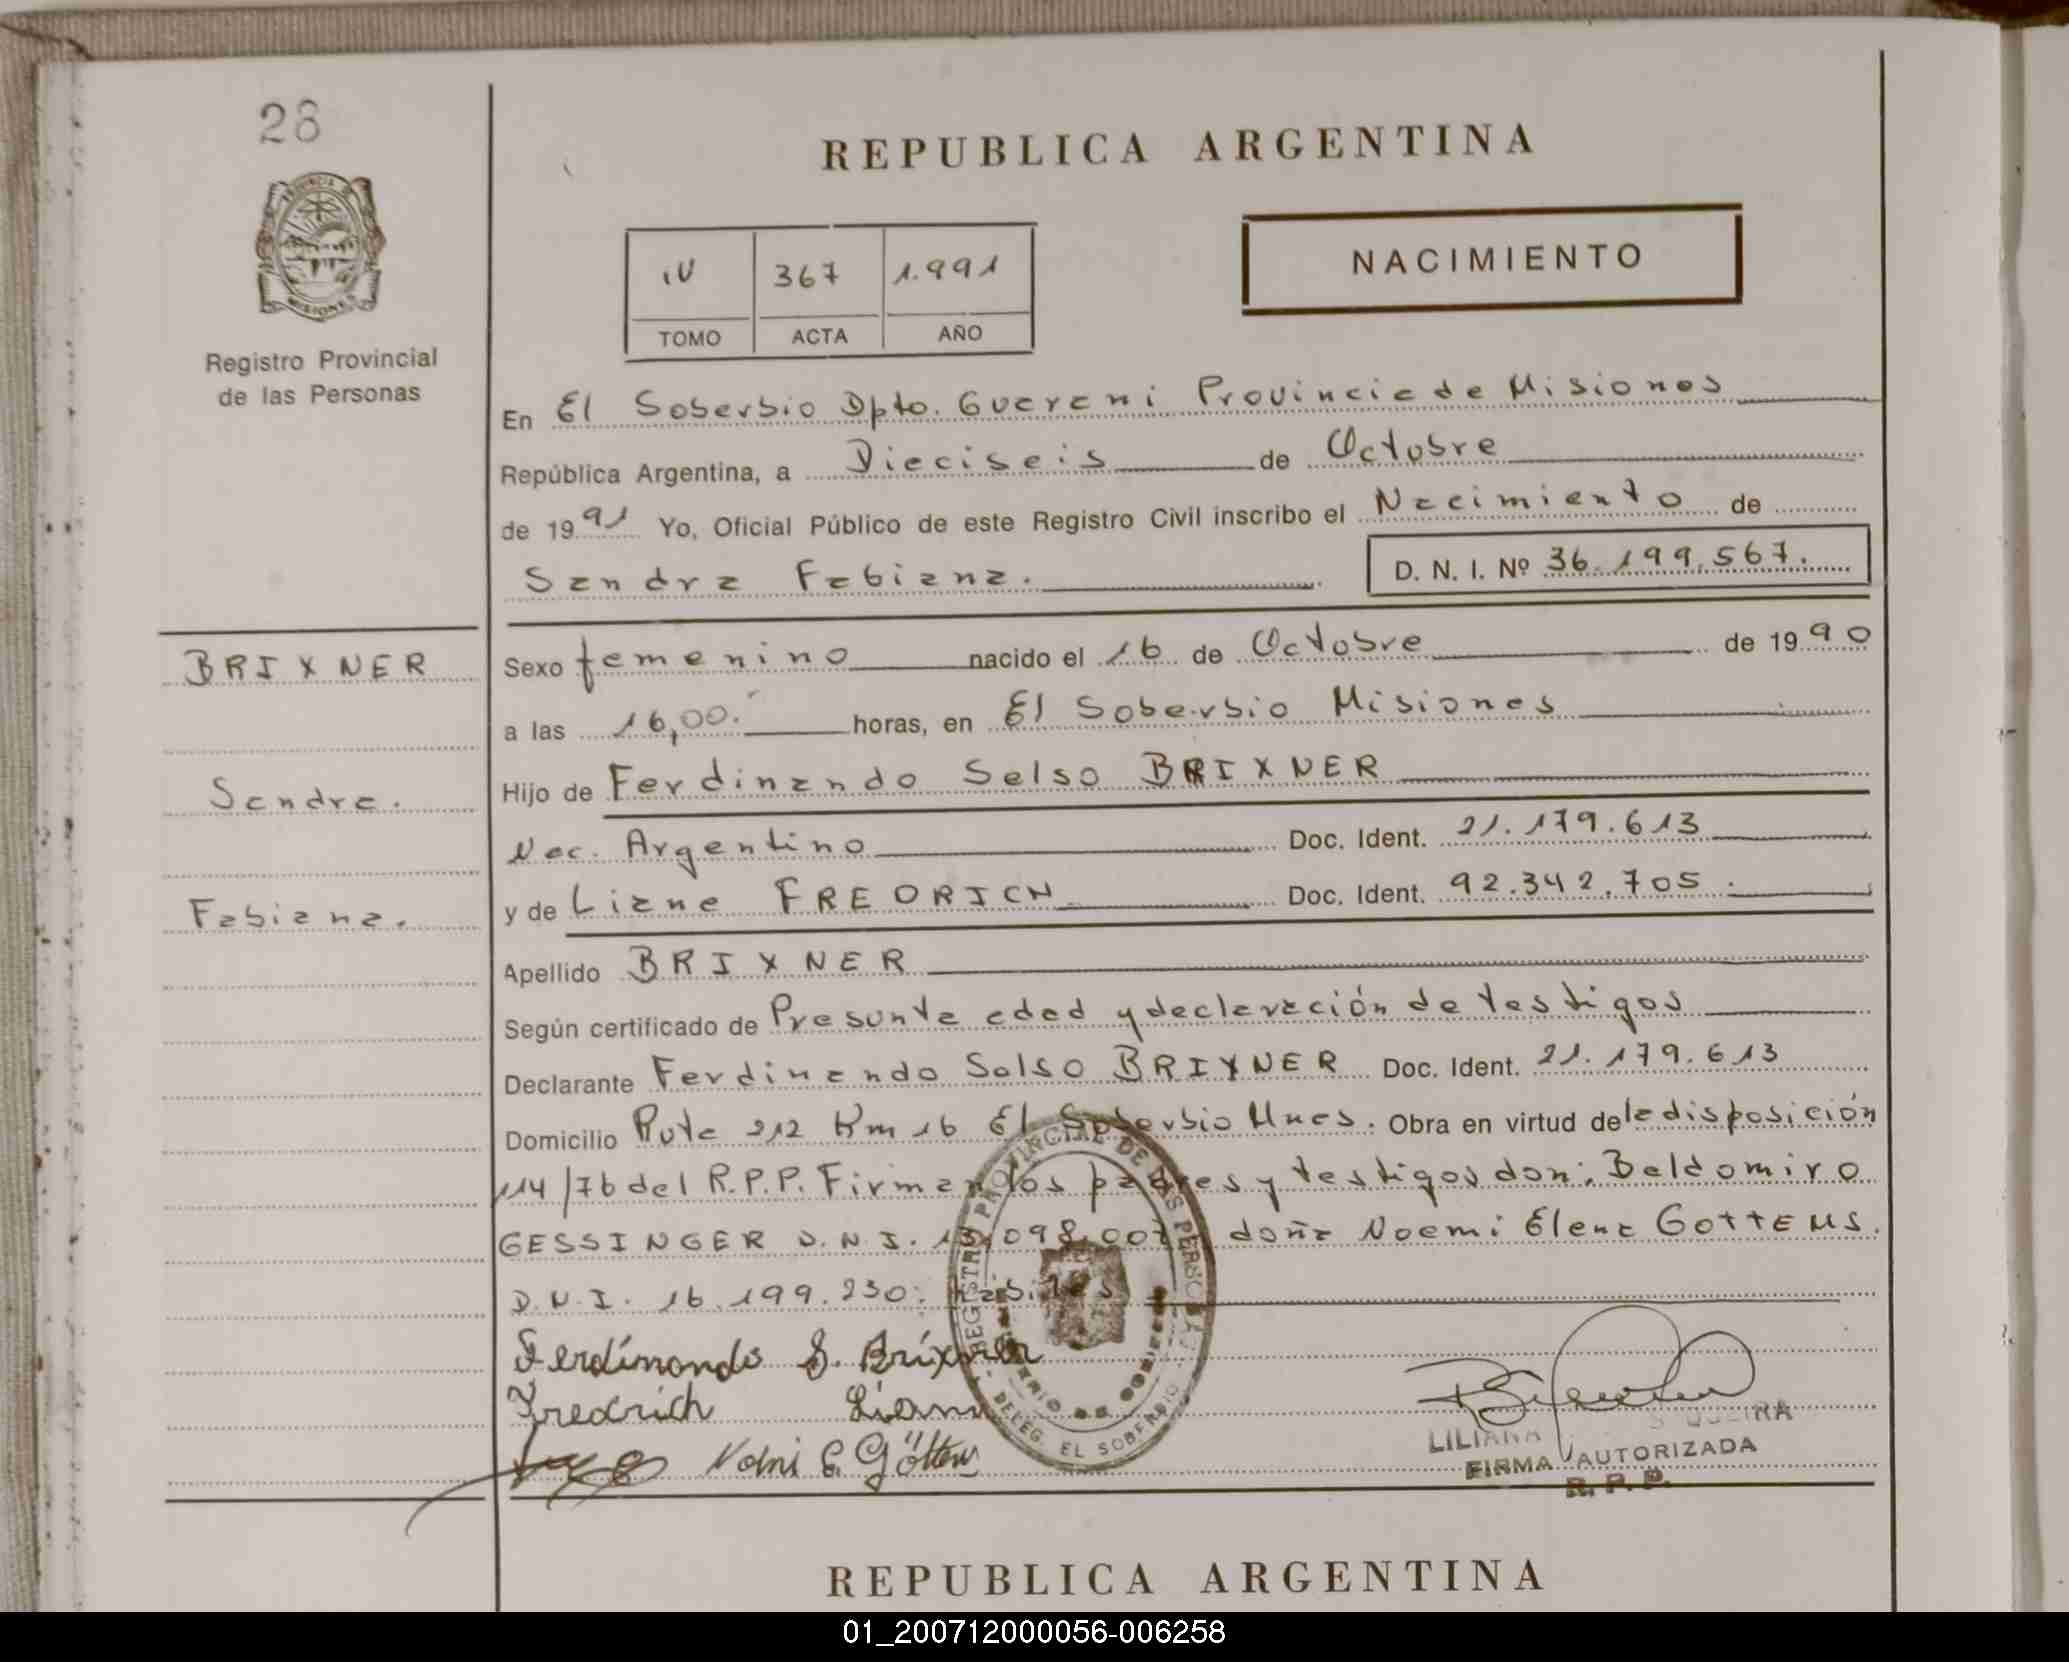 28
REPUBLICA ARGENTINA
PROVINCIA DE
MISIONES
Registro Provincial
de las Personas
IV 367 1.991
TOMO ACTA AÑO
NACIMIENTO
En El Soberbio Dpto. Guarani Provincia de Misiones
República Argentina, a Dieciseis de Octobre
de 1991 Yo, Oficial Público de este Registro Civil inscribo el Nacimiento de
Sandra Fabiana. D. N. I. Nº 36.199.567.
BRIXNER
Sandra.
Fabiana.
Sexo femenino nacido el 16 de Octobre de 1990
a las 16,00. horas, en El Soberbio Misiones
Hijo de Ferdinando Selso BRIXNER
Nac. Argentino Doc. Ident. 21.179.613
y de Liane FREDRICH Doc. Ident. 92.342.705.
Apellido BRIXNER
Según certificado de Presunta edad y declaración de testigos
Declarante Ferdinando Selso BRIXNER Doc. Ident. 21.179.613
Domicilio Ruta 212 Km 16 El Soberbio Mnes. Obra en virtud de la disposición
114/76 del R.P.P. Firman los padres y testigos don: Baldomiro
GESSINGER D.N.I. 13.098.007 doña Noemi Elena GOTTEMS.
D.N.I. 16.199.230. habiles
Ferdinando S. Brixner
Fredrich Liane
REGISTRO PROVINCIAL DE LAS PERSONAS
DELEG. EL SOBERBIO
LILIANA
FIRMA AUTORIZADA
R. P. P.
REPUBLICA ARGENTINA
01_200712000056-006258